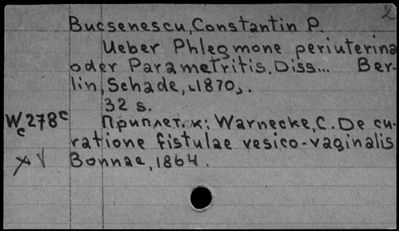 2
Bucsenescu, Constantin P.
Ueber Phlegmone periuterina
oder Parametritis. Diss... Ber-
lin, Schade, [1870].
32 s.
Wc278c Приплет. к: Warnecke, C. De cu-
ratione fistulae vesico-vaginalis
Bonnae, 1864.